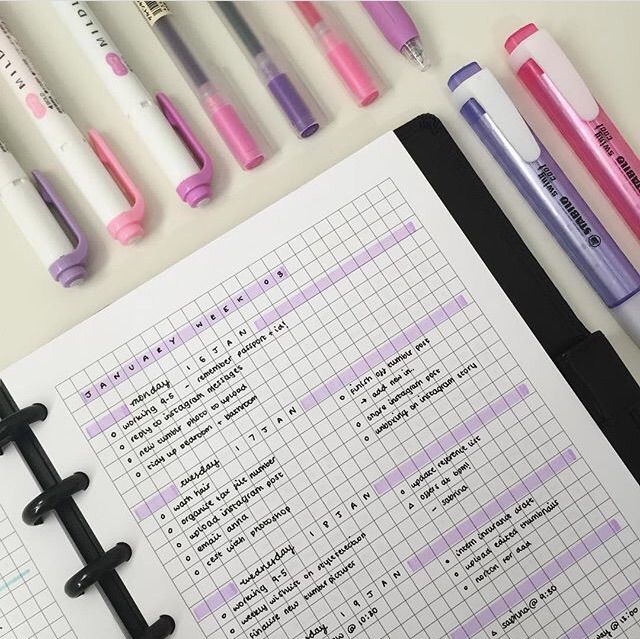 MILDL
MILDL
JANUARY WEEK 03
monday 16 JAN
o working 9-5 - remember passport + id!
o reply to instagram messages
o new tumblr photo to upload
o tidy up bedroom + bathroom
tuesday 17 JAN
o wash hair
o organise tax file number
o upload instagram post
o email anna
o rest with photoshop
o finish off tumblr post
→ add new in.
o share instagram post
o unboxing on instagram story
wednesday 18 JAN
o working 9-5
o weekly wishlist on style selection
o finalise new tumblr pictures
o update reference list
△ offers at 6pm!
- sabrina
19 JAN
@ 10:30
o intern insurance draft
o upload edited thumbnails
o notion for
△ sabrina @ 9:30
@ 10:
STABILO swing cool
STABILO swing cool